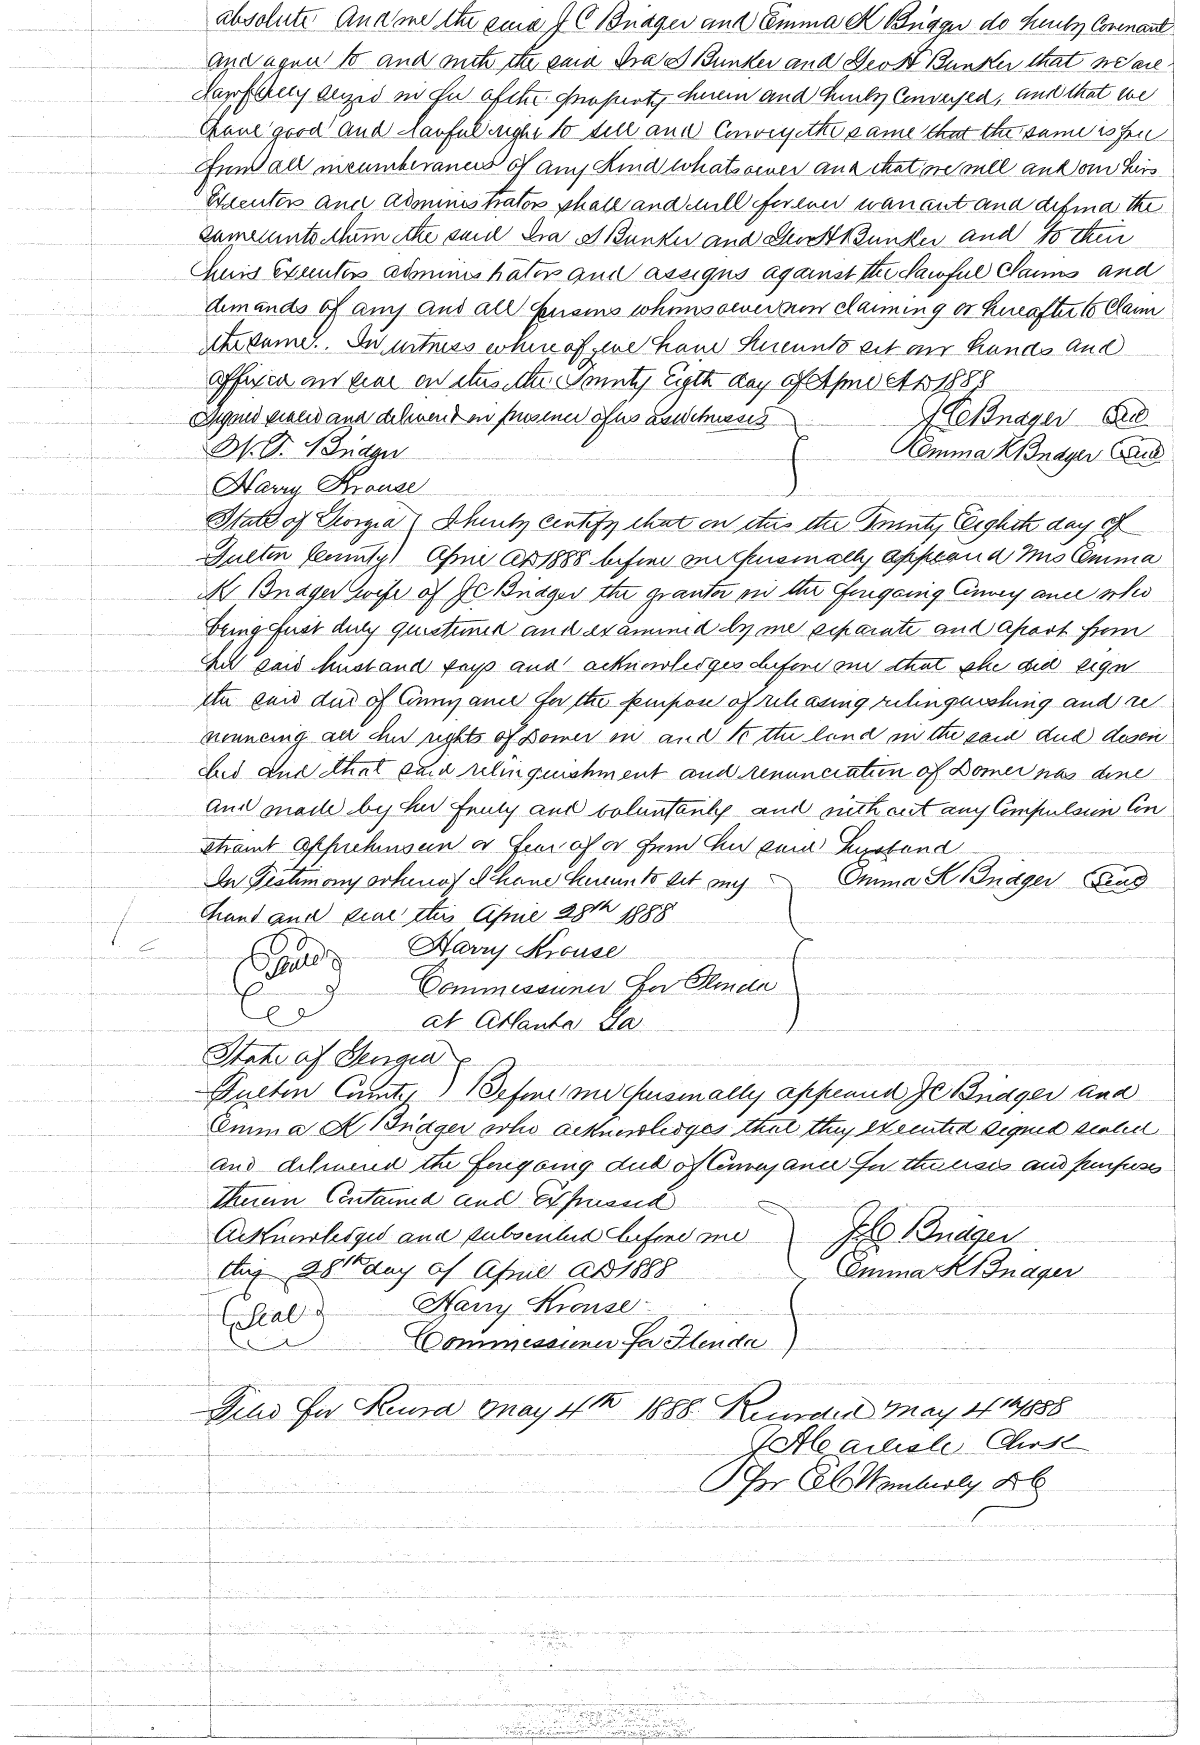 absolute And we the said J C Bridger and Emma K Bridger do hereby Covenant
and agree to and with the said Ira S Bunker and Geo H Bunker that we are
Lawfully seized in fee of the property herein and hereby Conveyed, and that we
have good and lawful right to sell and Convey the same that the same is free
from all incumberances of any Kind whatsoever and that we will and our heirs
Executors and administrators shall and will forever warrant and defend the
same unto them the said Ira S Bunker and Geo H Bunker and to their
heirs Executors administrators and assigns against the Lawful Claims and
demands of any and all persons whomsoever now claiming or hereafter to Claim
the same. In witness whereof we have hereunto set our hands and
affixed our seal on this the Twenty Eigth day of April AD 1888
Signed sealed and delivered in presence of us as witnesses J C Bridger Seal
Bridger Emma K Bridger Seal
Harry Krouse
State of Georgia I hereby certify that on this the Twenty Eighth day of
Fulton County April AD 1888 before me personally appeared Mrs Emma
K Bridger wife of J C Bridger the grantor in the foregoing Conveyance who
being first duly questioned and examined by me separate and apart from
her said husband says and acknowledges before me that she did sign
the said deed of Conveyance for the purpose of releasing relinquishing and re
nouncing all her rights of Dower in and to the land in the said deed descri
bed and that said relinquishment and renunciation of Dower was done
and made by her freely and voluntarily and without any Compulsion Con
straint apprehension or fear of or from her said husband
In Testimony whereof I have hereunto set my Emma K Bridger Seal
hand and seal this April 28th 1888
Seal Harry Krouse
Commissioner for Florida
at Atlanta Ga
State of Georgia
Fulton County ) Before me personally appeared J C Bridger and
Emma K Bridger who acknowledges that they executed signed sealed
and delivered the foregoing deed of Conveyance for the uses and purposes
therein Contained and Expressed
Acknowledged and subscribed before me J C Bridger
this 28th day of April AD 1888 Emma K Bridger
Seal Harry Krouse
Commissioner for Florida
Filed for Record May 4th 1888 Recorded May 4th 1888
Carlisle Clerk
Per Wimberly DC